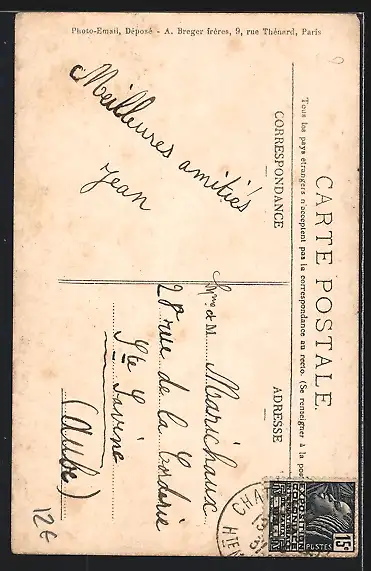 CARTE POSTALE.
Tous les pays étrangers n'acceptent pas la correspondance au recto. (Se renseigner à la pos
CORRESPONDANCE
ADRESSE
Photo-Email, Déposé - A. Breger frères, 9, rue Thénard, Paris
Meilleures amitiés
Jean
Mme et M. Marichaux
rue de la Corderie
Ste Savine
(Aube)
12€
CHA
HTE M
POSTES
15c